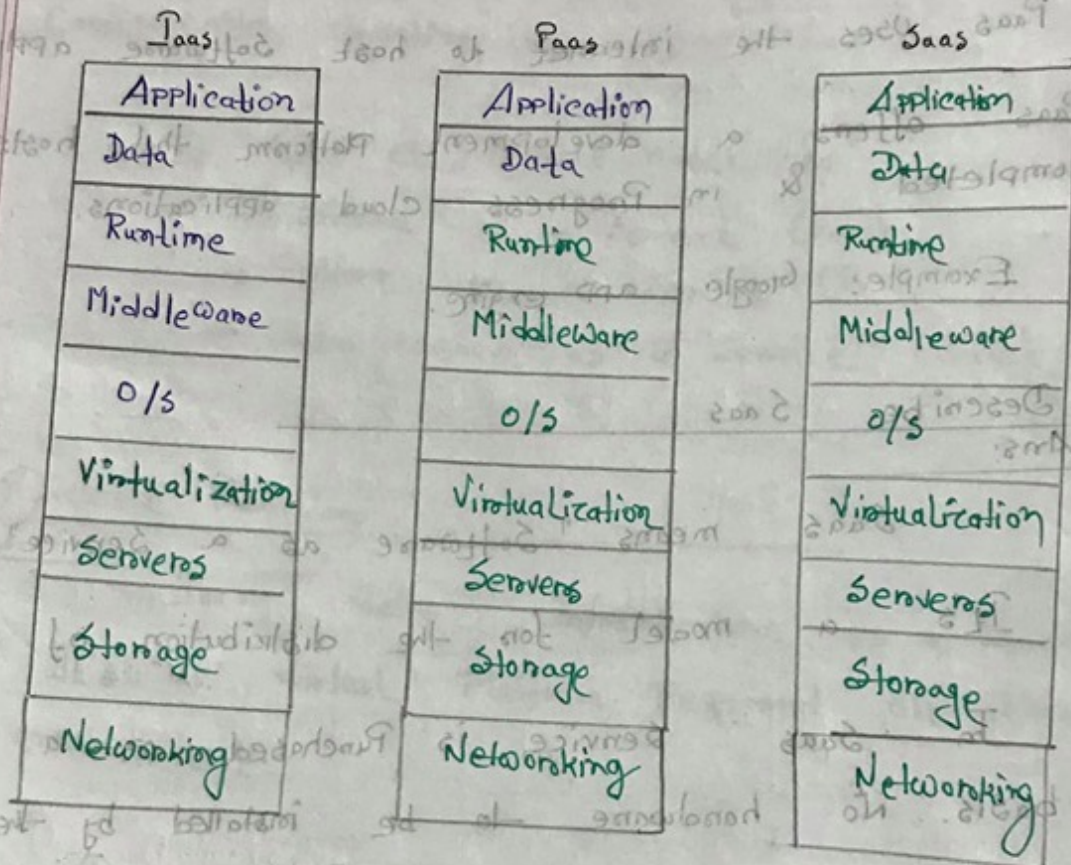 Iaas
Application
Data
Runtime
Middleware
O/S
Virtualization
Servers
Storage
Networking
Paas
Application
Data
Runtime
Middleware
O/S
Virtualization
Servers
Storage
Networking
Saas
Application
Data
Runtime
Middleware
O/S
Virtualization
Servers
Storage
Networking